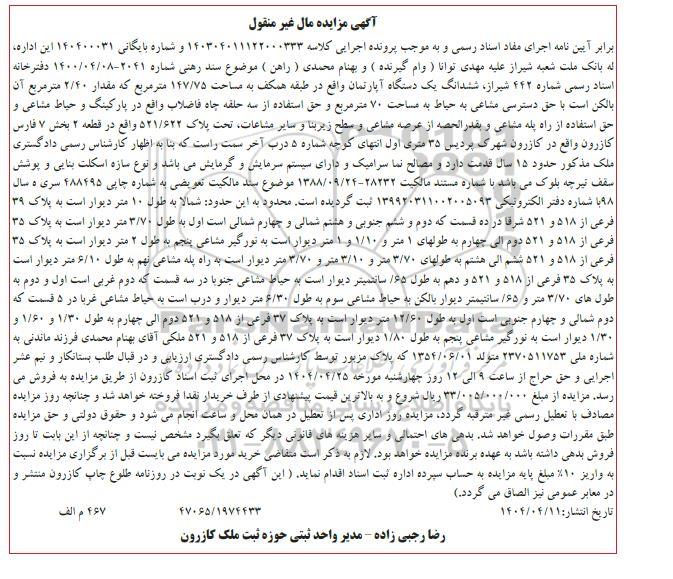 آگهی مزایده مال غیر منقول
برابر آیین نامه اجرای مفاد اسناد رسمی و به موجب پرونده اجرایی کلاسه ۱۴۰۳۰۴۰۱۱۱۲۲۰۰۰۳۳۳ و شماره بایگانی ۱۴۰۴۰۰۰۳۱ این اداره،
له بانک ملت شعبه شیراز علیه مهدی توانا (وام گیرنده) و بهنام محمدی (راهن) موضوع سند رهنی شماره ۲۰۴۱-۱۴۰۰/۰۴/۰۸ دفترخانه
اسناد رسمی شماره ۴۴۲ شیراز، ششدانگ یک دستگاه آپارتمان واقع در طبقه همکف به مساحت ۱۴۷/۷۵ مترمربع که مقدار ۲/۴۰ مترمربع آن
بالکن است با حق دسترسی مشاعی به حیاط به مساحت ۷۰ مترمربع و حق استفاده از سه حلقه چاه فاضلاب واقع در پارکینگ و حیاط مشاعی و
حق استفاده از راه پله مشاعی و بقدرالحصه از عرصه مشاعی و سطح زیربنا و سایر مشاعات، تحت پلاک ۵۲۱/۶۲۲ واقع در قطعه ۲ بخش ۷ فارس
کازرون واقع در کازرون شهرک پردیس ۳۵ متری اول انتهای کوچه شماره ۵ درب آخر سمت راست که بنا به اظهار کارشناس رسمی دادگستری
ملک مذکور حدود ۱۵ سال قدمت دارد و مصالح نما سرامیک و دارای سیستم سرمایش و گرمایش می باشد و نوع سازه اسکلت بنایی و پوشش
سقف تیرچه بلوک می باشد با شماره مستند مالکیت ۲۸۲۳۲-۱۳۸۸/۰۹/۲۴ موضوع سند مالکیت تعویضی به شماره چاپی ۴۸۸۴۹۵ سری ه سال
۹۸با شماره دفتر الکترونیکی ۱۳۹۹۲۰۳۱۱۰۰۲۰۰۵۰۹۳ ثبت گردیده است. محدود به این حدود: شمالا به طول ۱۰ متر دیوار است به پلاک ۳۹
فرعی از ۵۱۸ و ۵۲۱ شرقا در ده قسمت که دوم و ششم جنوبی و هشتم شمالی و چهارم شمالی است اول به طول ۳/۷۰ متر دیوار است به پلاک ۳۵
فرعی از ۵۱۸ و ۵۲۱ دوم الی چهارم به طولهای ۱ متر و ۱/۱۰ و ۱ متر دیوار است به نورگیر مشاعی پنجم به طول ۲ متر دیوار است به پلاک ۳۵
فرعی از ۵۱۸ و ۵۲۱ ششم الی هشتم به طولهای ۳/۷۰ متر و ۳/۱۰ متر و ۳/۷۰ متر دیوار است به راه پله مشاعی نهم به طول ۶/۱۰ متر دیوار است
به پلاک ۳۵ فرعی از ۵۱۸ و ۵۲۱ و دهم به طول ۶۵/ سانتیمتر دیوار است به حیاط مشاعی جنوبا در سه قسمت که دوم غربی است اول و دوم به
طول های ۳/۷۰ متر و ۶۵/ سانتیمتر دیوار بالکن به حیاط مشاعی سوم به طول ۶/۳۰ متر دیوار و درب است به حیاط مشاعی غربا در ۵ قسمت که
دوم شمالی و چهارم جنوبی است اول به طول ۱۲/۶۰ متر دیوار است به پلاک ۳۷ فرعی از ۵۱۸ و ۵۲۱ دوم الی چهارم به طول ۱/۳۰ و ۱/۶۰ و
۱/۳۰ دیوار است به نورگیر مشاعی پنجم به طول ۱/۸۰ دیوار است به پلاک ۳۷ فرعی از ۵۱۸ و ۵۲۱ ملکی آقای بهنام محمدی فرزند ماندنی به
شماره ملی ۲۳۷۰۵۱۱۷۵۳ متولد ۱۳۵۴/۰۶/۰۱ که پلاک مزبور توسط کارشناس رسمی دادگستری ارزیابی و در قبال طلب بستانکار و نیم عشر
اجرایی و حق حراج از ساعت ۹ الی ۱۲ روز چهارشنبه مورخه ۱۴۰۴/۰۴/۲۵ در محل اجرای ثبت اسناد کازرون از طریق مزایده به فروش می
رسد. مزایده از مبلغ ۳۳/۰۰۵/۰۰۰/۰۰۰ ریال شروع و به بالاترین قیمت پیشنهادی از طرف خریدار نقدا فروخته خواهد شد و چنانچه روز مزایده
مصادف با تعطیل رسمی غیر مترقبه گردد، مزایده روز اداری پس از تعطیل در همان محل و ساعت انجام می شود و حقوق دولتی و حق مزایده
طبق مقررات وصول خواهد شد. بدهی های احتمالی و سایر هزینه های قانونی دیگر که تعلق بگیرد مشخص نیست و چنانچه از این بابت تا روز
فروش بدهی داشته باشد به عهده برنده مزایده خواهد بود. لازم به ذکر است متقاضی خرید مورد مزایده می بایست قبل از برگزاری مزایده نسبت
به واریز ۱۰٪ مبلغ پایه مزایده به حساب سپرده اداره ثبت اسناد اقدام نماید. (این آگهی در یک نوبت در روزنامه طلوع چاپ کازرون منتشر و
در معابر عمومی نیز الصاق می گردد.)
تاریخ انتشار: ۱۴۰۴/۰۴/۱۱ ۴۷۰۶۵/۱۹۷۴۴۳۳ ۴۶۷ م الف
رضا رجبی زاده - مدیر واحد ثبتی حوزه ثبت ملک کازرون